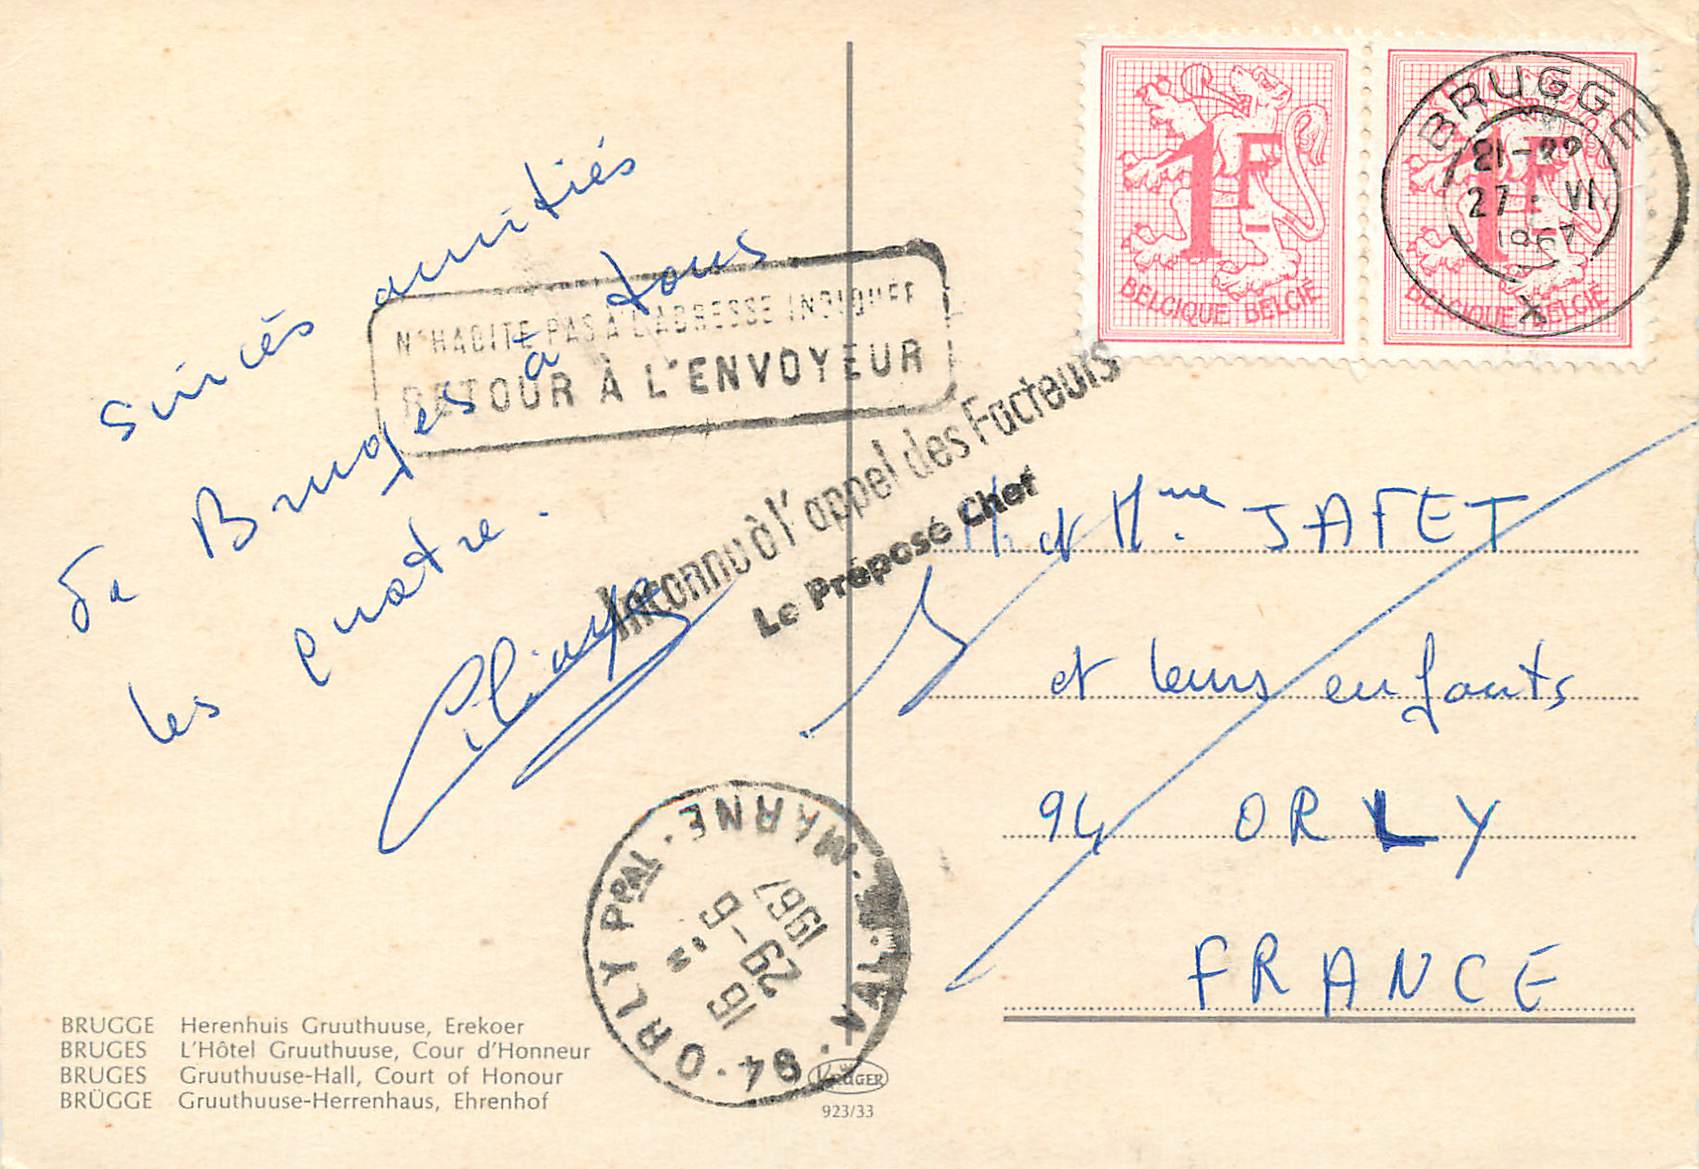 Sincès amitiés
de Bruges à tous
les quatre.
N'HABITE PAS À L'ADRESSE INDIQUÉE
RETOUR À L'ENVOYEUR
Inconnu à l'appel des Facteurs
Le Préposé Chef
1F
BELGIQUE BELGIË
1F
BELGIQUE BELGIË
BRUGGE
21-22
27 VI
1967
M. et Mme JAFET
et leurs enfants
94 ORLY
FRANCE
94 ORLY PPAL VAL-DE-MARNE
16 H
29-6
1967
BRUGGE Herenhuis Gruuthuuse, Erekoer
BRUGES L'Hôtel Gruuthuuse, Cour d'Honneur
BRUGES Gruuthuuse-Hall, Court of Honour
BRÜGGE Gruuthuuse-Herrenhaus, Ehrenhof
KRÜGER
923/33